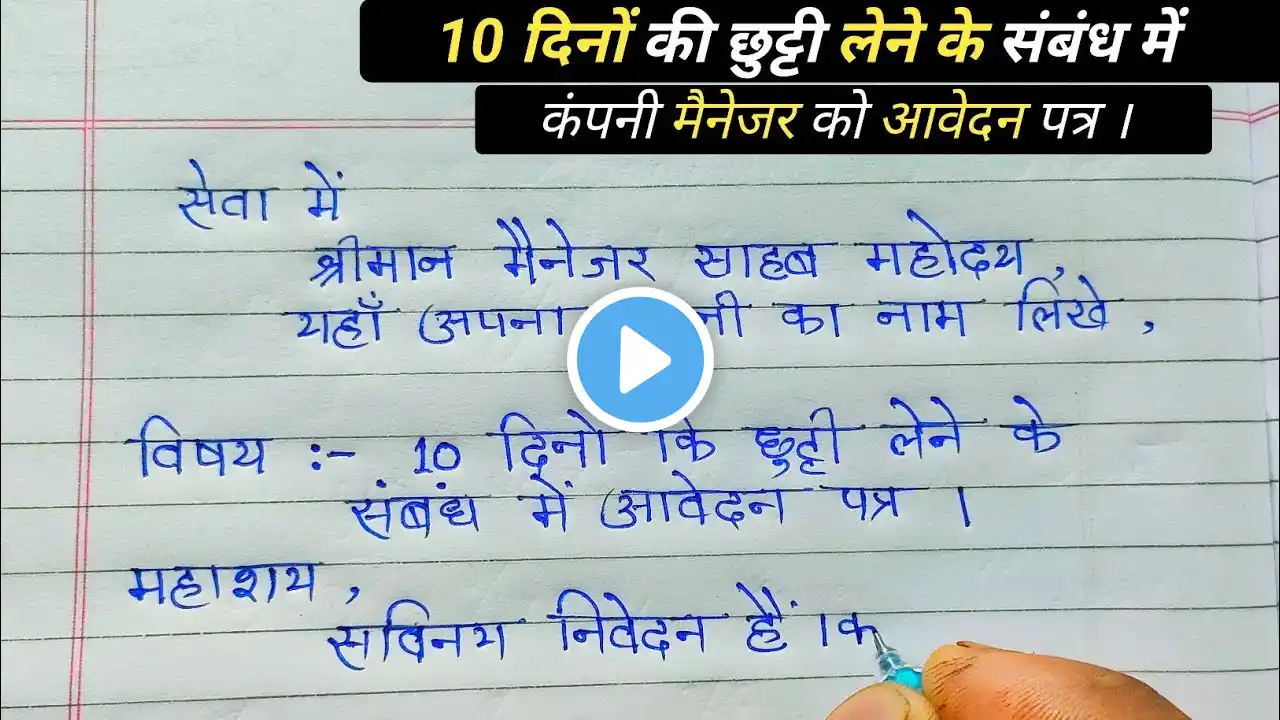 10 दिनों की छुट्टी लेने के संबंध में
कंपनी मैनेजर को आवेदन पत्र ।
सेवा में
श्रीमान मैनेजर साहब महोदय ,
यहाँ (अपना नी का नाम लिखे ,
विषय :- 10 दिनो कि छुट्टी लेने के
संबंध में आवेदन पत्र ।
महाशय ,
सविनय निवेदन हैं ।क